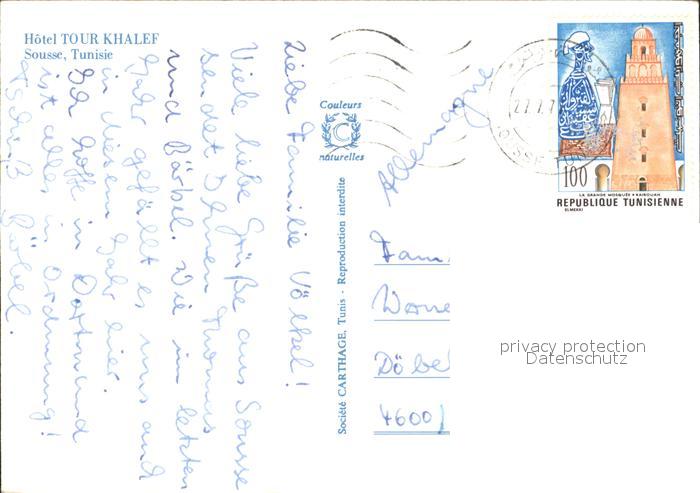 Hôtel TOUR KHALEF
Sousse, Tunisie
Liebe Familie Völkel!
Viele liebe Grüße aus Sousse
sendet Ihnen Thomas
und Bärbel. Wie im letzten
Jahr gefällt es uns auch
in diesem Jahr hier.
Ich hoffe in Dortmund
ist alles in Ordnung!
Tschüß Bärbel.
Couleurs
C
naturelles
Société CARTHAGE, Tunis - Reproduction interdite
Allemagne
Fam.
Werne
Döbe
4600
100
LA GRANDE MOSQUÉE • KAIROUAN
REPUBLIQUE TUNISIENNE
ELMEKKI
privacy protection
Datenschutz